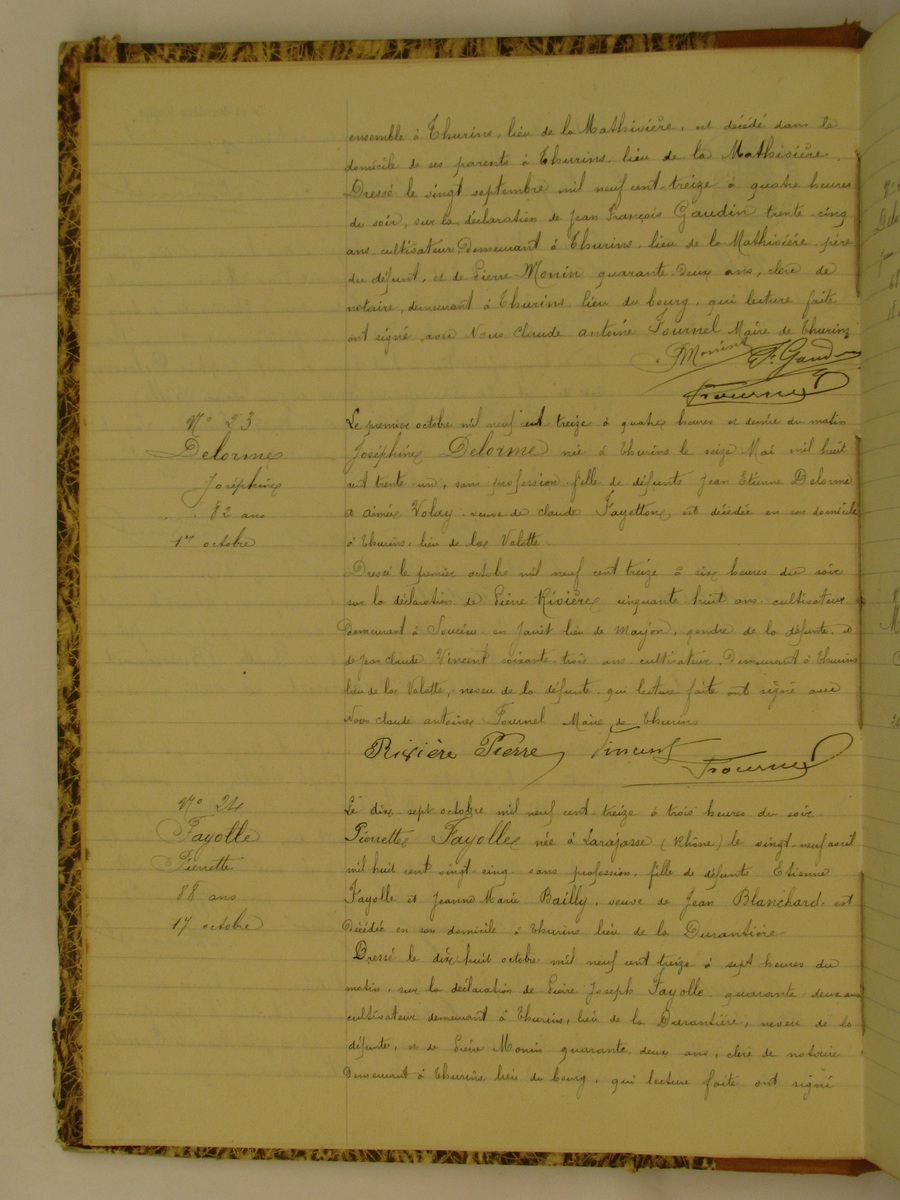 ensemble à Thurins, lieu de la Mathivière, est décédé dans le
domicile de ses parents à Thurins lieu de la Mathivière.
Dressé le vingt septembre mil neuf cent treize à quatre heures
du soir, sur la déclaration de Jean François Gaudin trente-cinq
ans cultivateur Demeurant à Thurins, lieu de la Mathivière père
du défunt, et de Pierre Monin quarante deux ans, clerc de
notaire, demeurant à Thurins, lieu du bourg, qui lecture faite
ont signé avec Nous Claude antoine Fournel Maire de Thurins
PMonin F. Gaudin
Fournel
N° 23
Delorme
Joséphine
82 ans
1er octobre
Le premier octobre mil neuf cent treize à quatre heures et demie du matin
Joséphine Delorme née à Thurins le seize Mai mil huit
cent trente un, sans profession fille de défunts Jean Etienne Delorme
et aimée Volay veuve de claude Fayetton, est décédée en son domicile
à Thurins lieu de la Valotte.
Dressé le premier octobre mil neuf cent treize à six heures du soir
sur la déclaration de Pierre Rivière cinquante huit ans cultivateur
Demeurant à Soucieu en Jarret lieu de Marjon, gendre de la défunte, et
de jean claude Vincent soixante trois ans cultivateur, Demeurant à Thurins
lieu de la Valotte, neveu de la défunte, qui lecture faite ont signé avec
Nous claude antoine Fournel Maire de Thurins
Rivière Pierre Vincent Fournel
N° 24
Fayolle
Pierrette
88 ans
17 octobre
Le dix-sept octobre mil neuf cent treize à trois heures du soir
Pierrette Fayolle née à Larajasse (Rhône) le vingt-neuf avril
mil huit cent vingt cinq sans profession, fille de défunts Etienne
Fayolle et Jeanne Marie Bailly, veuve de Jean Blanchard, est
Décédée en son domicile à Thurins lieu de la Durantière
Dressé le dix huit octobre mil neuf cent treize à sept heures du
matin, sur la déclaration de Pierre Joseph Fayolle quarante-deux ans
cultivateur demeurant à Thurins, lieu de la Durantière, neveu de la
défunte, et de Pierre Monin quarante deux ans, clerc de notaire
Demeurant à Thurins lieu du bourg, qui lecture faite ont signé